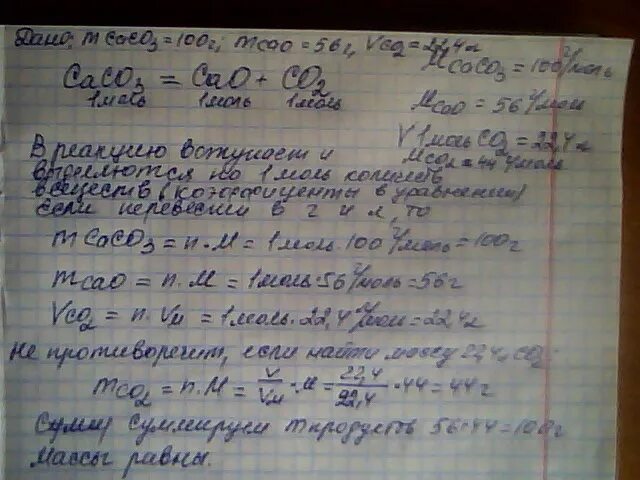 Дано: m CaCO3 = 100г; m CaO = 56г, VCO2 = 22,4л
MCaCO3 = 100 г/моль
CaCO3 = CaO + CO2
1моль 1моль 1моль
MCaO = 56 г/моль
V 1моль CO2 = 22,4л
MCO2 = 44 г/моль
В реакцию вступают и
выделяются по 1 моль количеств
веществ (коэффициенты в уравнении)
если перевести в г и л, то
m CaCO3 = n · M = 1моль · 100 г/моль = 100г
mCaO = n · M = 1моль · 56 г/моль = 56г
VCO2 = n · VM = 1моль · 22,4 л/моль = 22,4л
Не противоречит, если найти массу 22,4л CO2
mCO2 = n · M = V/VM · M = 22,4/22,4 · 44 = 44г
Сумму Суммируем m продуктов 56+44=100г
Массы равны.